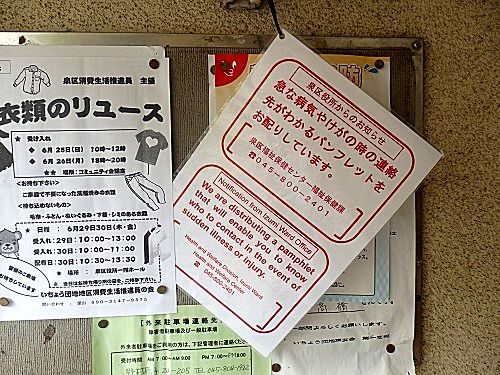 泉区消費生活推進員 主催
衣類のリユース
★★ 受け入れ ★★
★ 6月25日(日) 10時〜12時
★ 6月26日(月) 18時〜20時
★★ 場所: コミュニティ会議室
<お持ち下さい>
ご家庭で不要になった洗濯済みの衣類
<持ち込めないもの>
毛布・ふとん・ぬいぐるみ・下着・シミのある衣類
★ 日時: 6月29日30日(木・金)
受入れ 29日: 10:00〜13:00
受入れ 30日: 10:00〜11:00
配布日 30日: 10:30〜13:30
★ 場所: 泉区役所一階ホール
いちょう団地地区消費生活推進員の会
泉区役所からのお知らせ
急な病気やけがの時の連絡
先がわかるパンフレットを
お配りしています。
泉区福祉保健センター福祉保健課
☎045-800-2401
Notification from Izumi Ward Office
We are distributing a pamphlet
that will enable you to know
who to contact in the event of
sudden illness or injury.
Health and Welfare Division, Izumi Ward
Health and Welfare Center
045-800-2401
【外来駐車場連絡先
障害者駐車場及び一般駐車場
外来駐車場をご利用の方は、下記管理者に連絡
受付時間 AM 7:00〜AM 9:00 PM 7:00〜